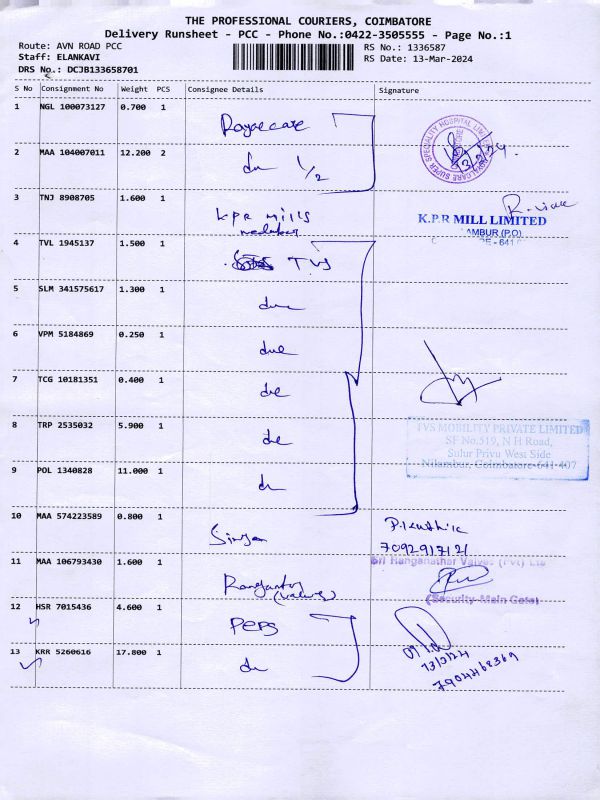 THE PROFESSIONAL COURIERS, COIMBATORE
Delivery Runsheet - PCC - Phone No.:0422-3505555 - Page No.:1
Route: AVN ROAD PCC
RS No.: 1336587
Staff: ELANKAVI
RS Date: 13-Mar-2024
DRS No.: DCJB133658701
S No Consignment No Weight PCS Consignee Details Signature
1 NGL 100073127 0.700 1
2 MAA 104007011 12.200 2 1/2
3 TNJ 8908705 1.600 1 KPR Mills
K.P.R MILL LIMITED
4 TVL 1945137 1.500 1 TVS
5 SLM 341575617 1.300 1
6 VPM 5184869 0.250 1
7 TCG 10181351 0.400 1
8 TRP 2535032 5.900 1
TVS MOBILITY PRIVATE LIMITED
SF No.519, N H Road,
Sulur Privu West Side
Nilambur, Coimbatore-641 407
9 POL 1340828 11.000 1
10 MAA 574223589 0.800 1
7092917121
11 MAA 106793430 1.600 1
Sri Ranganathar Valves (Pvt) Ltd
(Security-Main Gate)
12 HSR 7015436 4.600 1 PEPS
13 KRR 5260616 17.800 1
13/3/24
7904468369